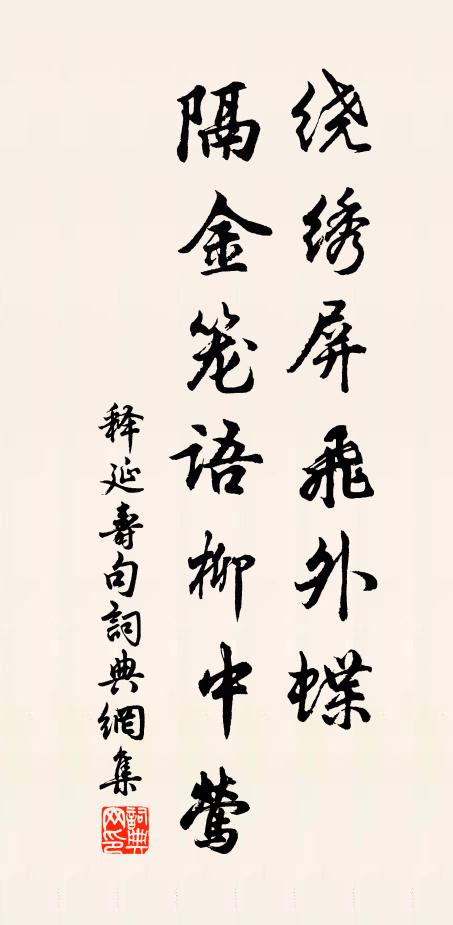 绕绣屏飛外蝶
隔金笼语柳中莺
释延壽句詞典網集
詞典
网印